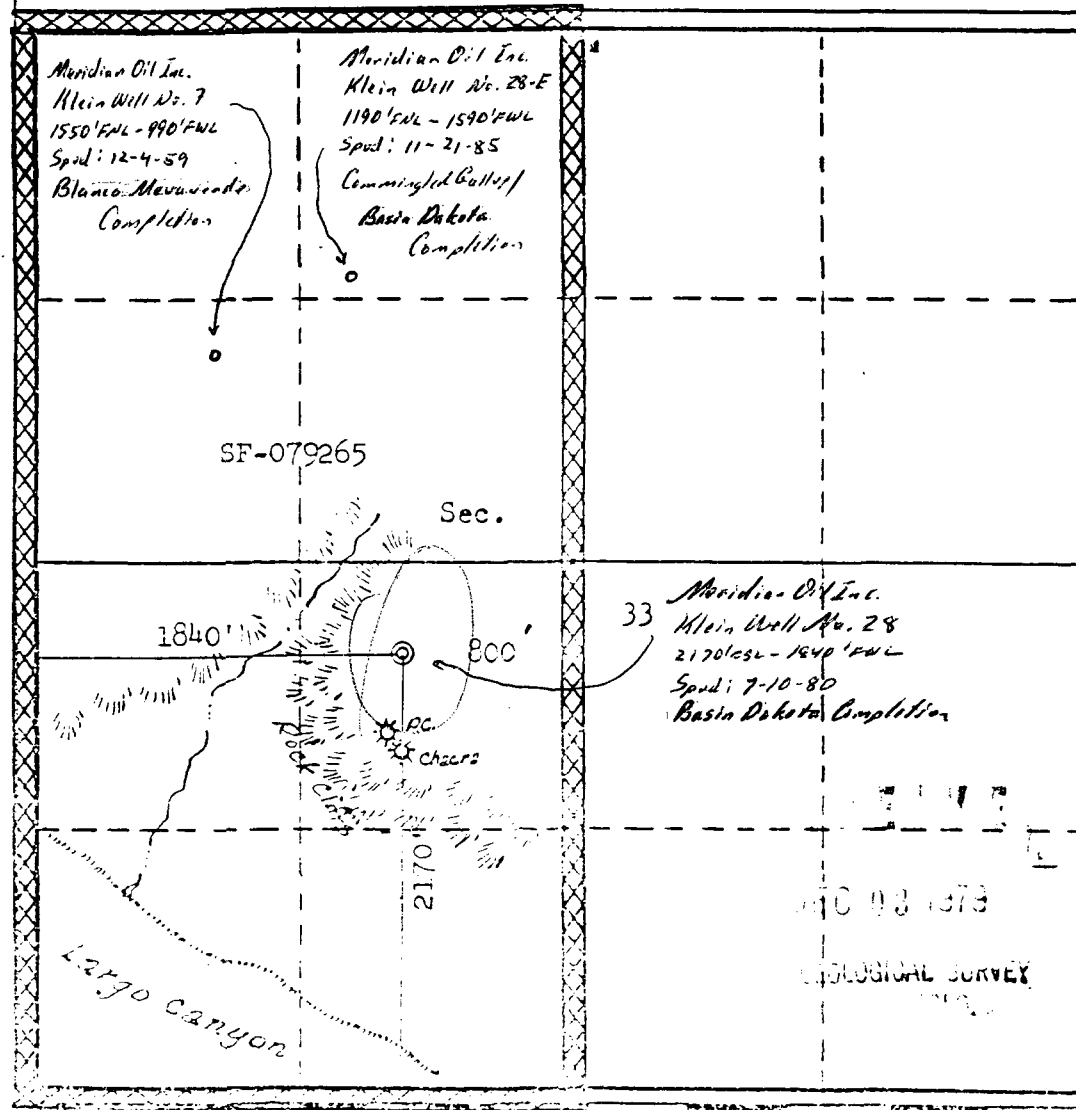 Meridian Oil Inc.
Klein Well No. 7
1550'FNL - 990'FWL
Spud: 12-4-59
Blanco Mesaverde
Completion
Meridian Oil Inc.
Klein Well No. 28-E
1190'FNL - 1590'FWL
Spud: 11-21-85
Commingled Gallup/
Basin Dakota
Completion
SF-079265
Sec.
33
Meridian Oil Inc.
Klein Well No. 28
2170'FSL - 1840'FWL
Spud: 7-10-80
Basin Dakota Completion
1840'
800'
P.C.
Chacra
Rock Cliffs
2170'
Largo canyon
GEOLOGICAL SURVEY